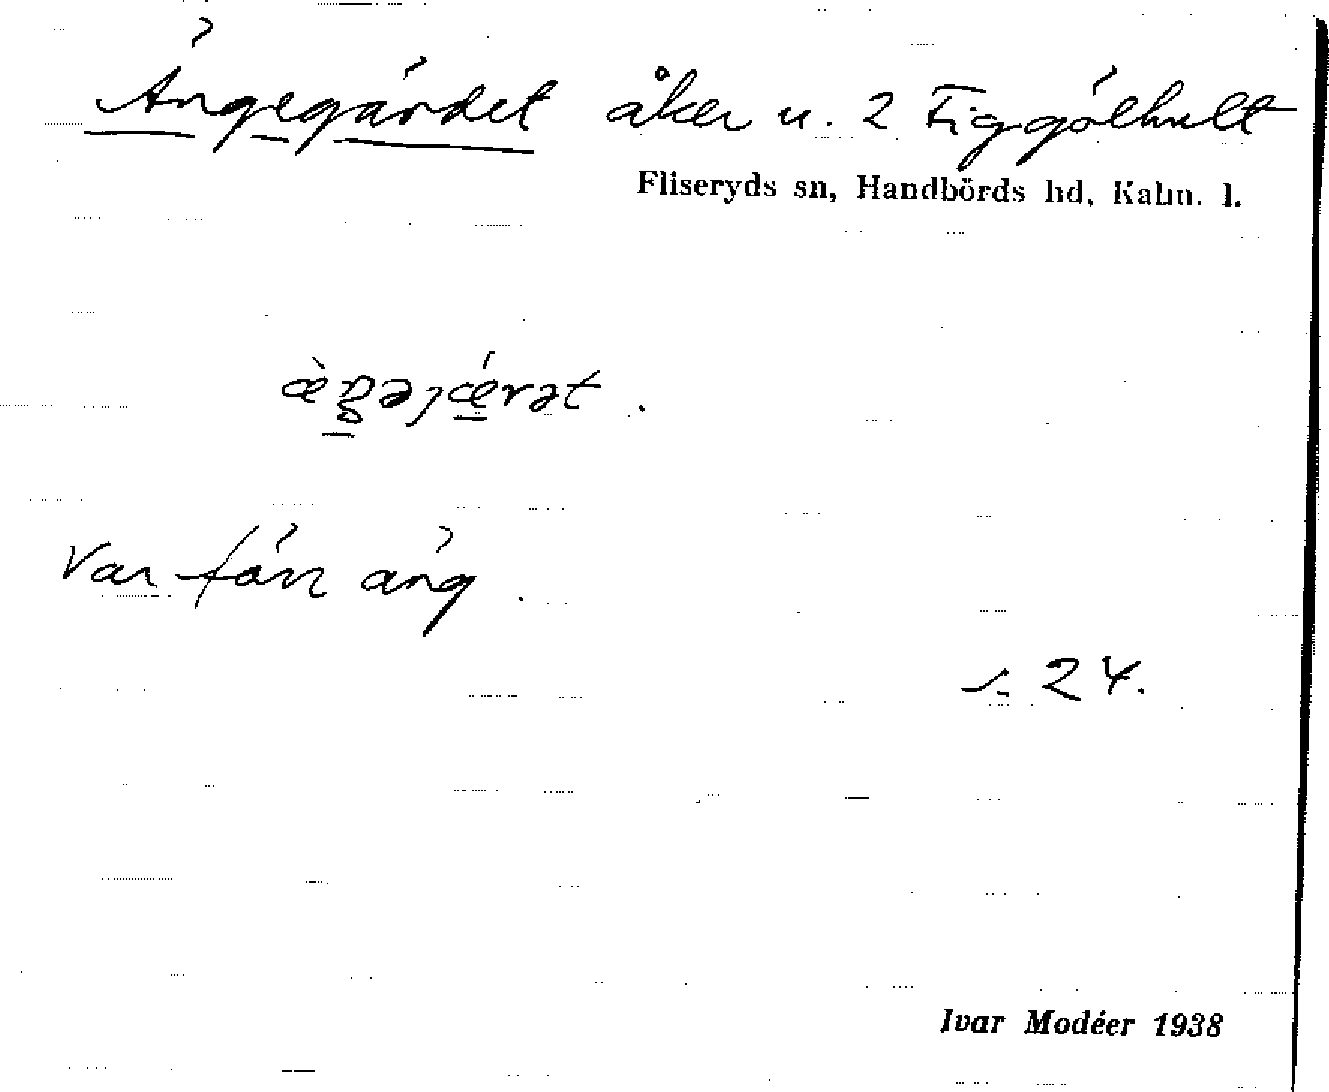 Ängegärdet åker u. 2 Figgölhult
Fliseryds sn, Handbörds hd, Kalm. l.
Var förr äng.
s. 24.
Ivar Modéer 1938